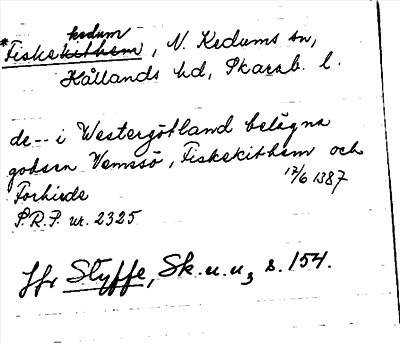 kedum
*Fiskekithem, N. Kedums sn,
Kållands hd, Skarab. l.
de -- i Westergötland belägna
godsen Wemssö, Fiskekithem och
Forhirde
17/6 1387
P.R.P. nr. 2325
Jfr Styffe, Sk.u.u, s. 154.